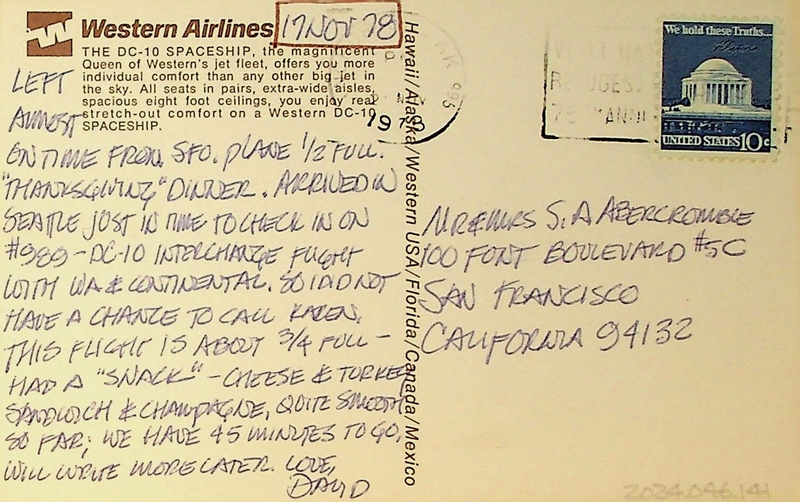 Western Airlines
17 NOV 78
THE DC-10 SPACESHIP, the magnificent
Queen of Western's jet fleet, offers you more
individual comfort than any other big jet in
the sky. All seats in pairs, extra-wide aisles,
spacious eight foot ceilings, you enjoy real
stretch-out comfort on a Western DC-10
SPACESHIP.
LEFT
ALMOST
ON TIME FROM SFO. PLANE 1/2 FULL.
"THANKSGIVING" DINNER. ARRIVED IN
SEATTLE JUST IN TIME TO CHECK IN ON
#989 - DC-10 INTERCHANGE FLIGHT
WITH WA & CONTINENTAL. SO I DID NOT
HAVE A CHANCE TO CALL KAREN.
THIS FLIGHT IS ABOUT 3/4 FULL -
HAD A "SNACK" - CHEESE & TURKEY
SANDWICH & CHAMPAGNE. QUITE SMOOTH
SO FAR; WE HAVE 45 MINUTES TO GO.
WILL WRITE MORE LATER. LOVE,
DAVID
Hawaii/Alaska/Western USA/Florida/Canada/Mexico
NOV
1978
995
We hold these Truths...
UNITED STATES 10c
MR & MRS S. A ABERCROMBIE
100 FONT BOULEVARD #5C
SAN FRANCISCO
CALIFORNIA 94132
2024.046.141